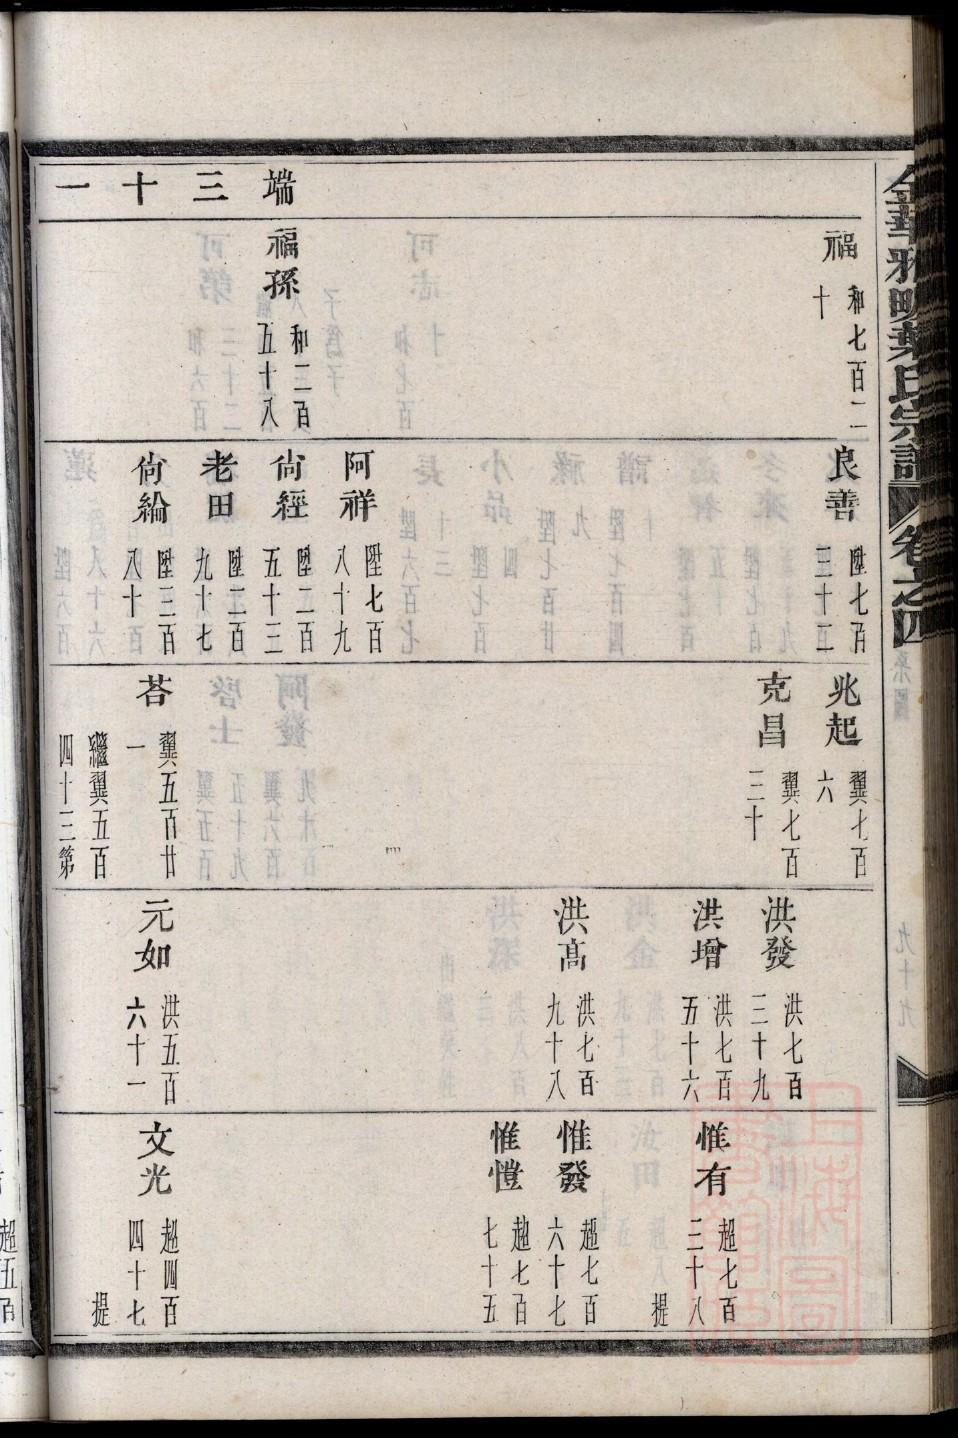 金華雅畈葉氏宗譜
卷之四
系圖
九十九
端三十一
福 和七百二十
福孫 和二百五十八
良善 陞七百三十二
阿祥 陞七百八十九
尙經 陞二百五十三
老田 陞二百九十七
尙綸 陞三百八十
兆起 翼七百六
克昌 翼七百三十
荅 翼五百廿一
繼翼五百四十三第
洪發 洪七百三十九
洪增 洪七百五十六
洪高 洪七百九十八
元如 洪五百六十一
惟有 超七百三十八
提
惟發 超七百六十七
惟愷 超七百七十五
文光 超四百四十七
提
超五百